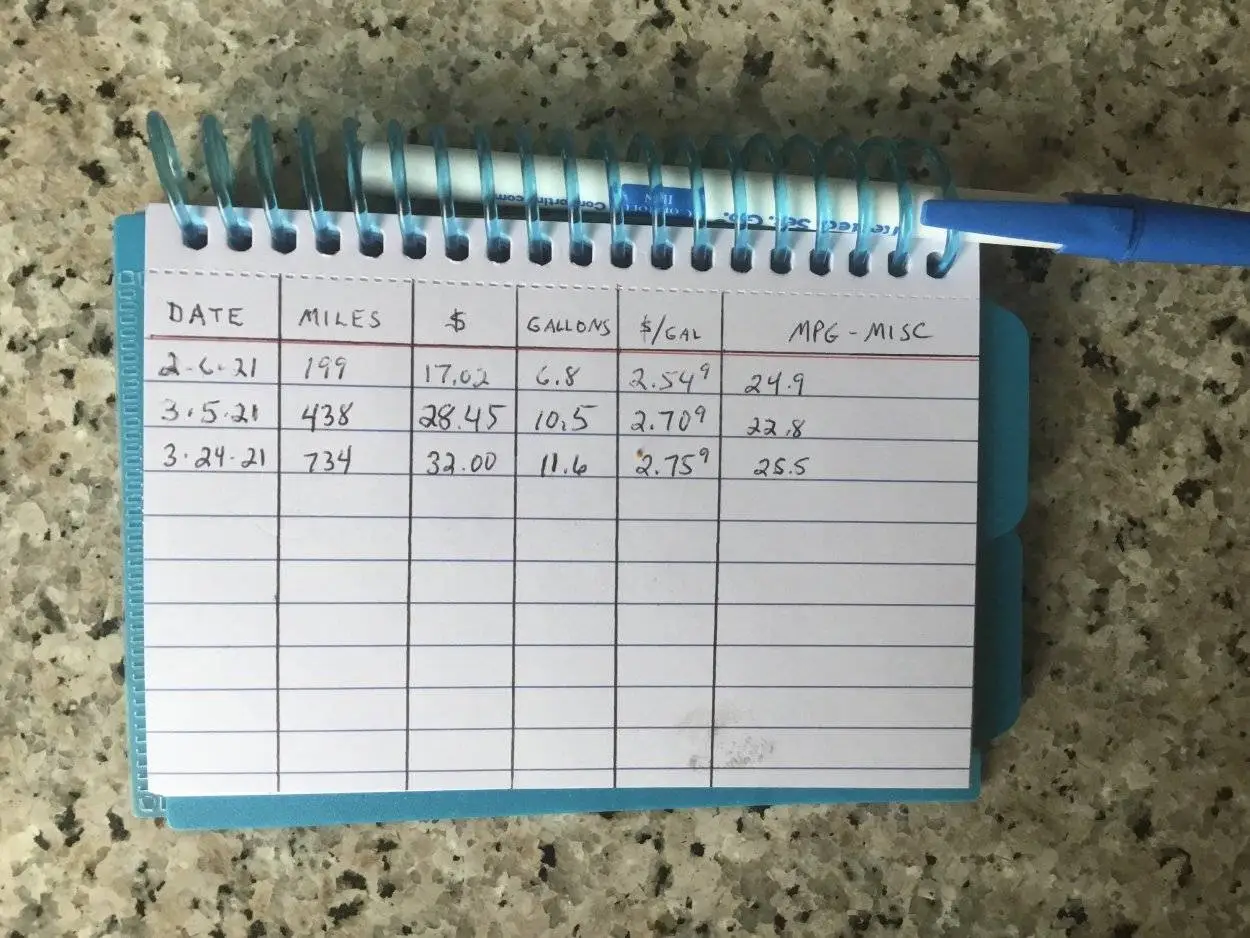 Comfortinn.com COMFORT INN
DATE MILES $ GALLONS $/GAL MPG - MISC
2-6-21 199 17.02 6.8 2.54⁹ 24.9
3.5.21 438 28.45 10.5 2.70⁹ 22.8
3.24.21 734 32.00 11.6 2.75⁹ 25.5